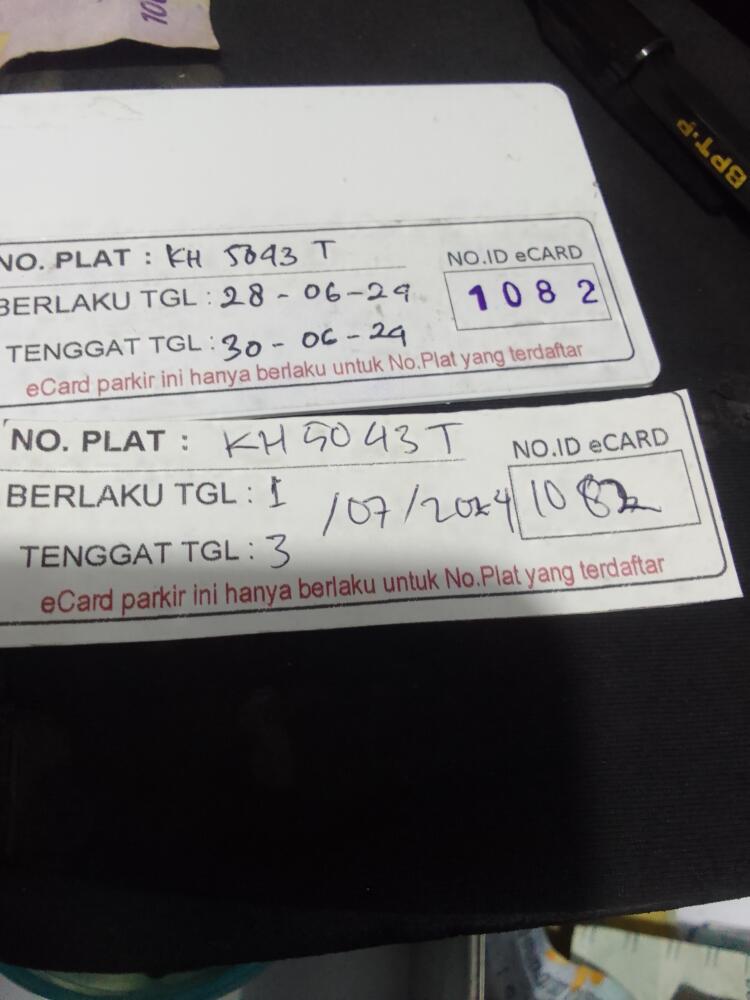 100
BPT-P
NO. PLAT : KH 5043 T
NO.ID eCARD
BERLAKU TGL : 28 - 06 - 24
1082
TENGGAT TGL : 30 - 06 - 24
eCard parkir ini hanya berlaku untuk No.Plat yang terdaftar
NO. PLAT : KH 5043 T
NO.ID eCARD
BERLAKU TGL : 1
/07/2024
1082
TENGGAT TGL : 3
eCard parkir ini hanya berlaku untuk No.Plat yang terdaftar